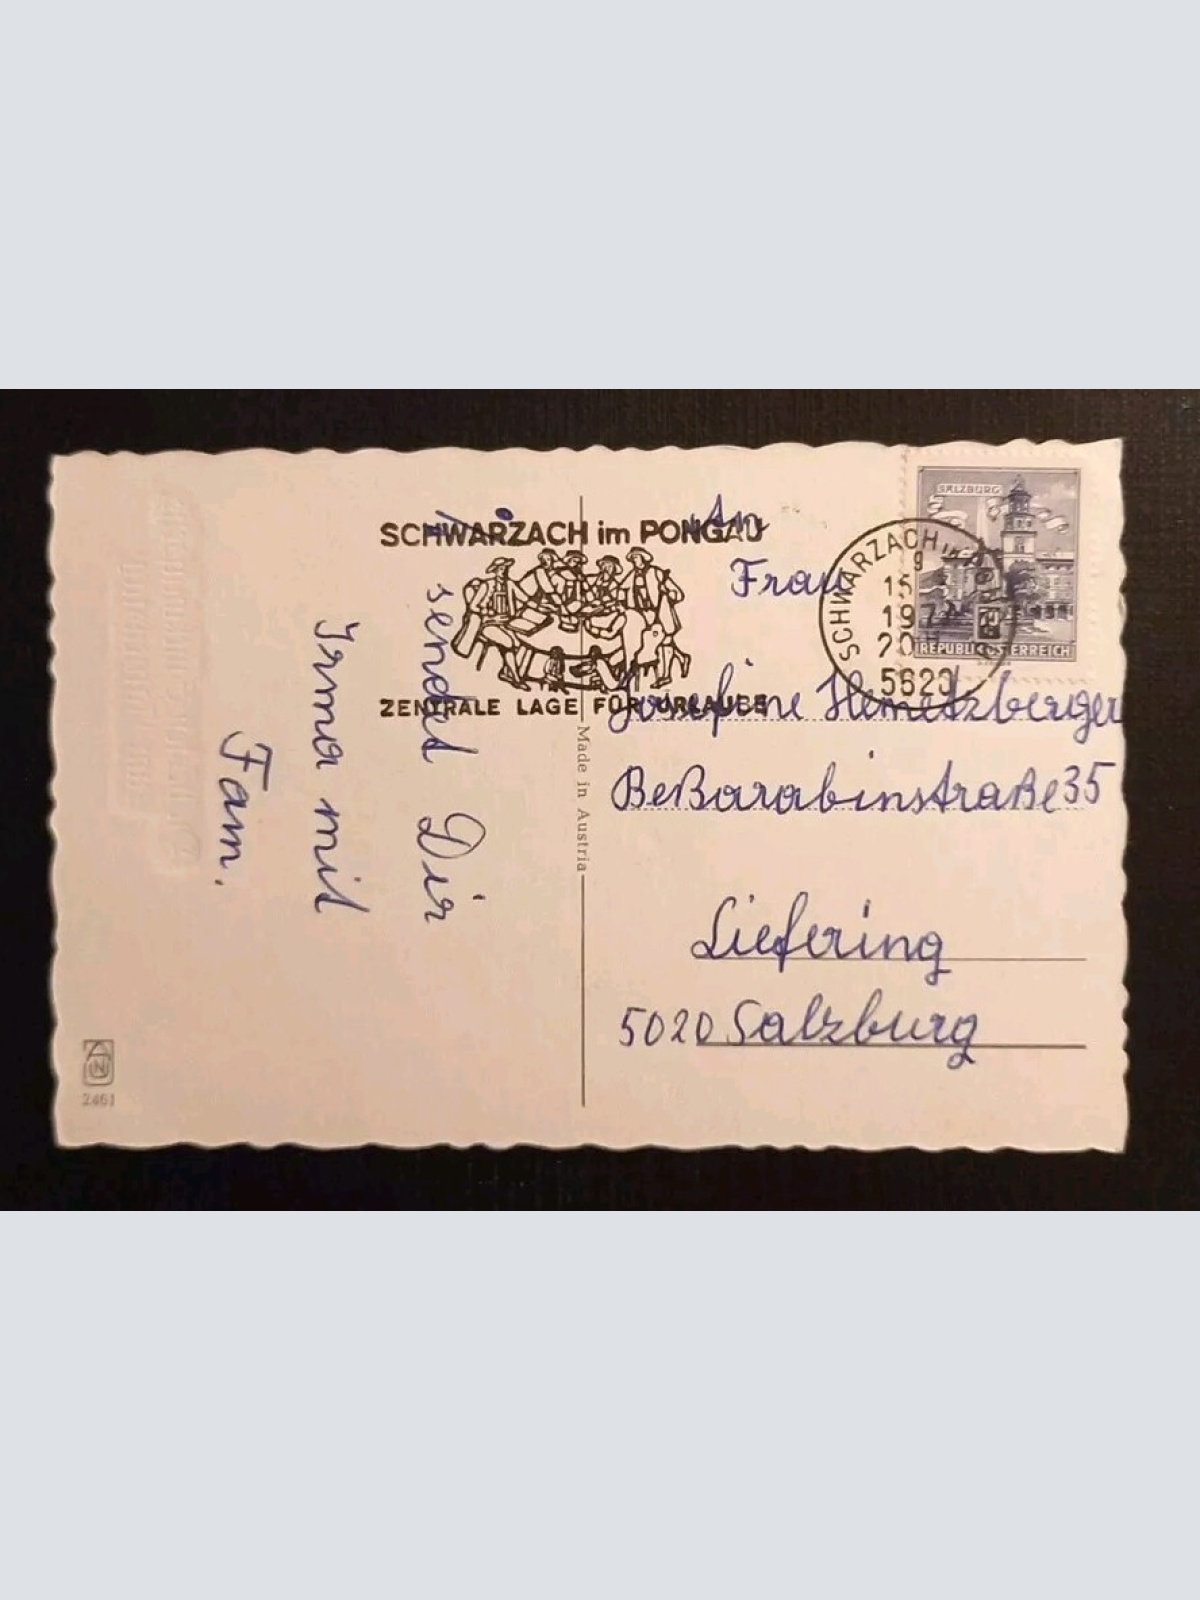 SCHWARZACH im PONGAU
ZENTRALE LAGE FÜR URLAUBE
sendet Dir
Irma mit
Fam.
Made in Austria
2461
An
Frau
Josefine Hemetzberger
Beßarabinstraße 35
Liefering
5020 Salzburg
SCHWARZACH im
15
197
20
5620
SALZBURG
REPUBLIK ÖSTERREICH